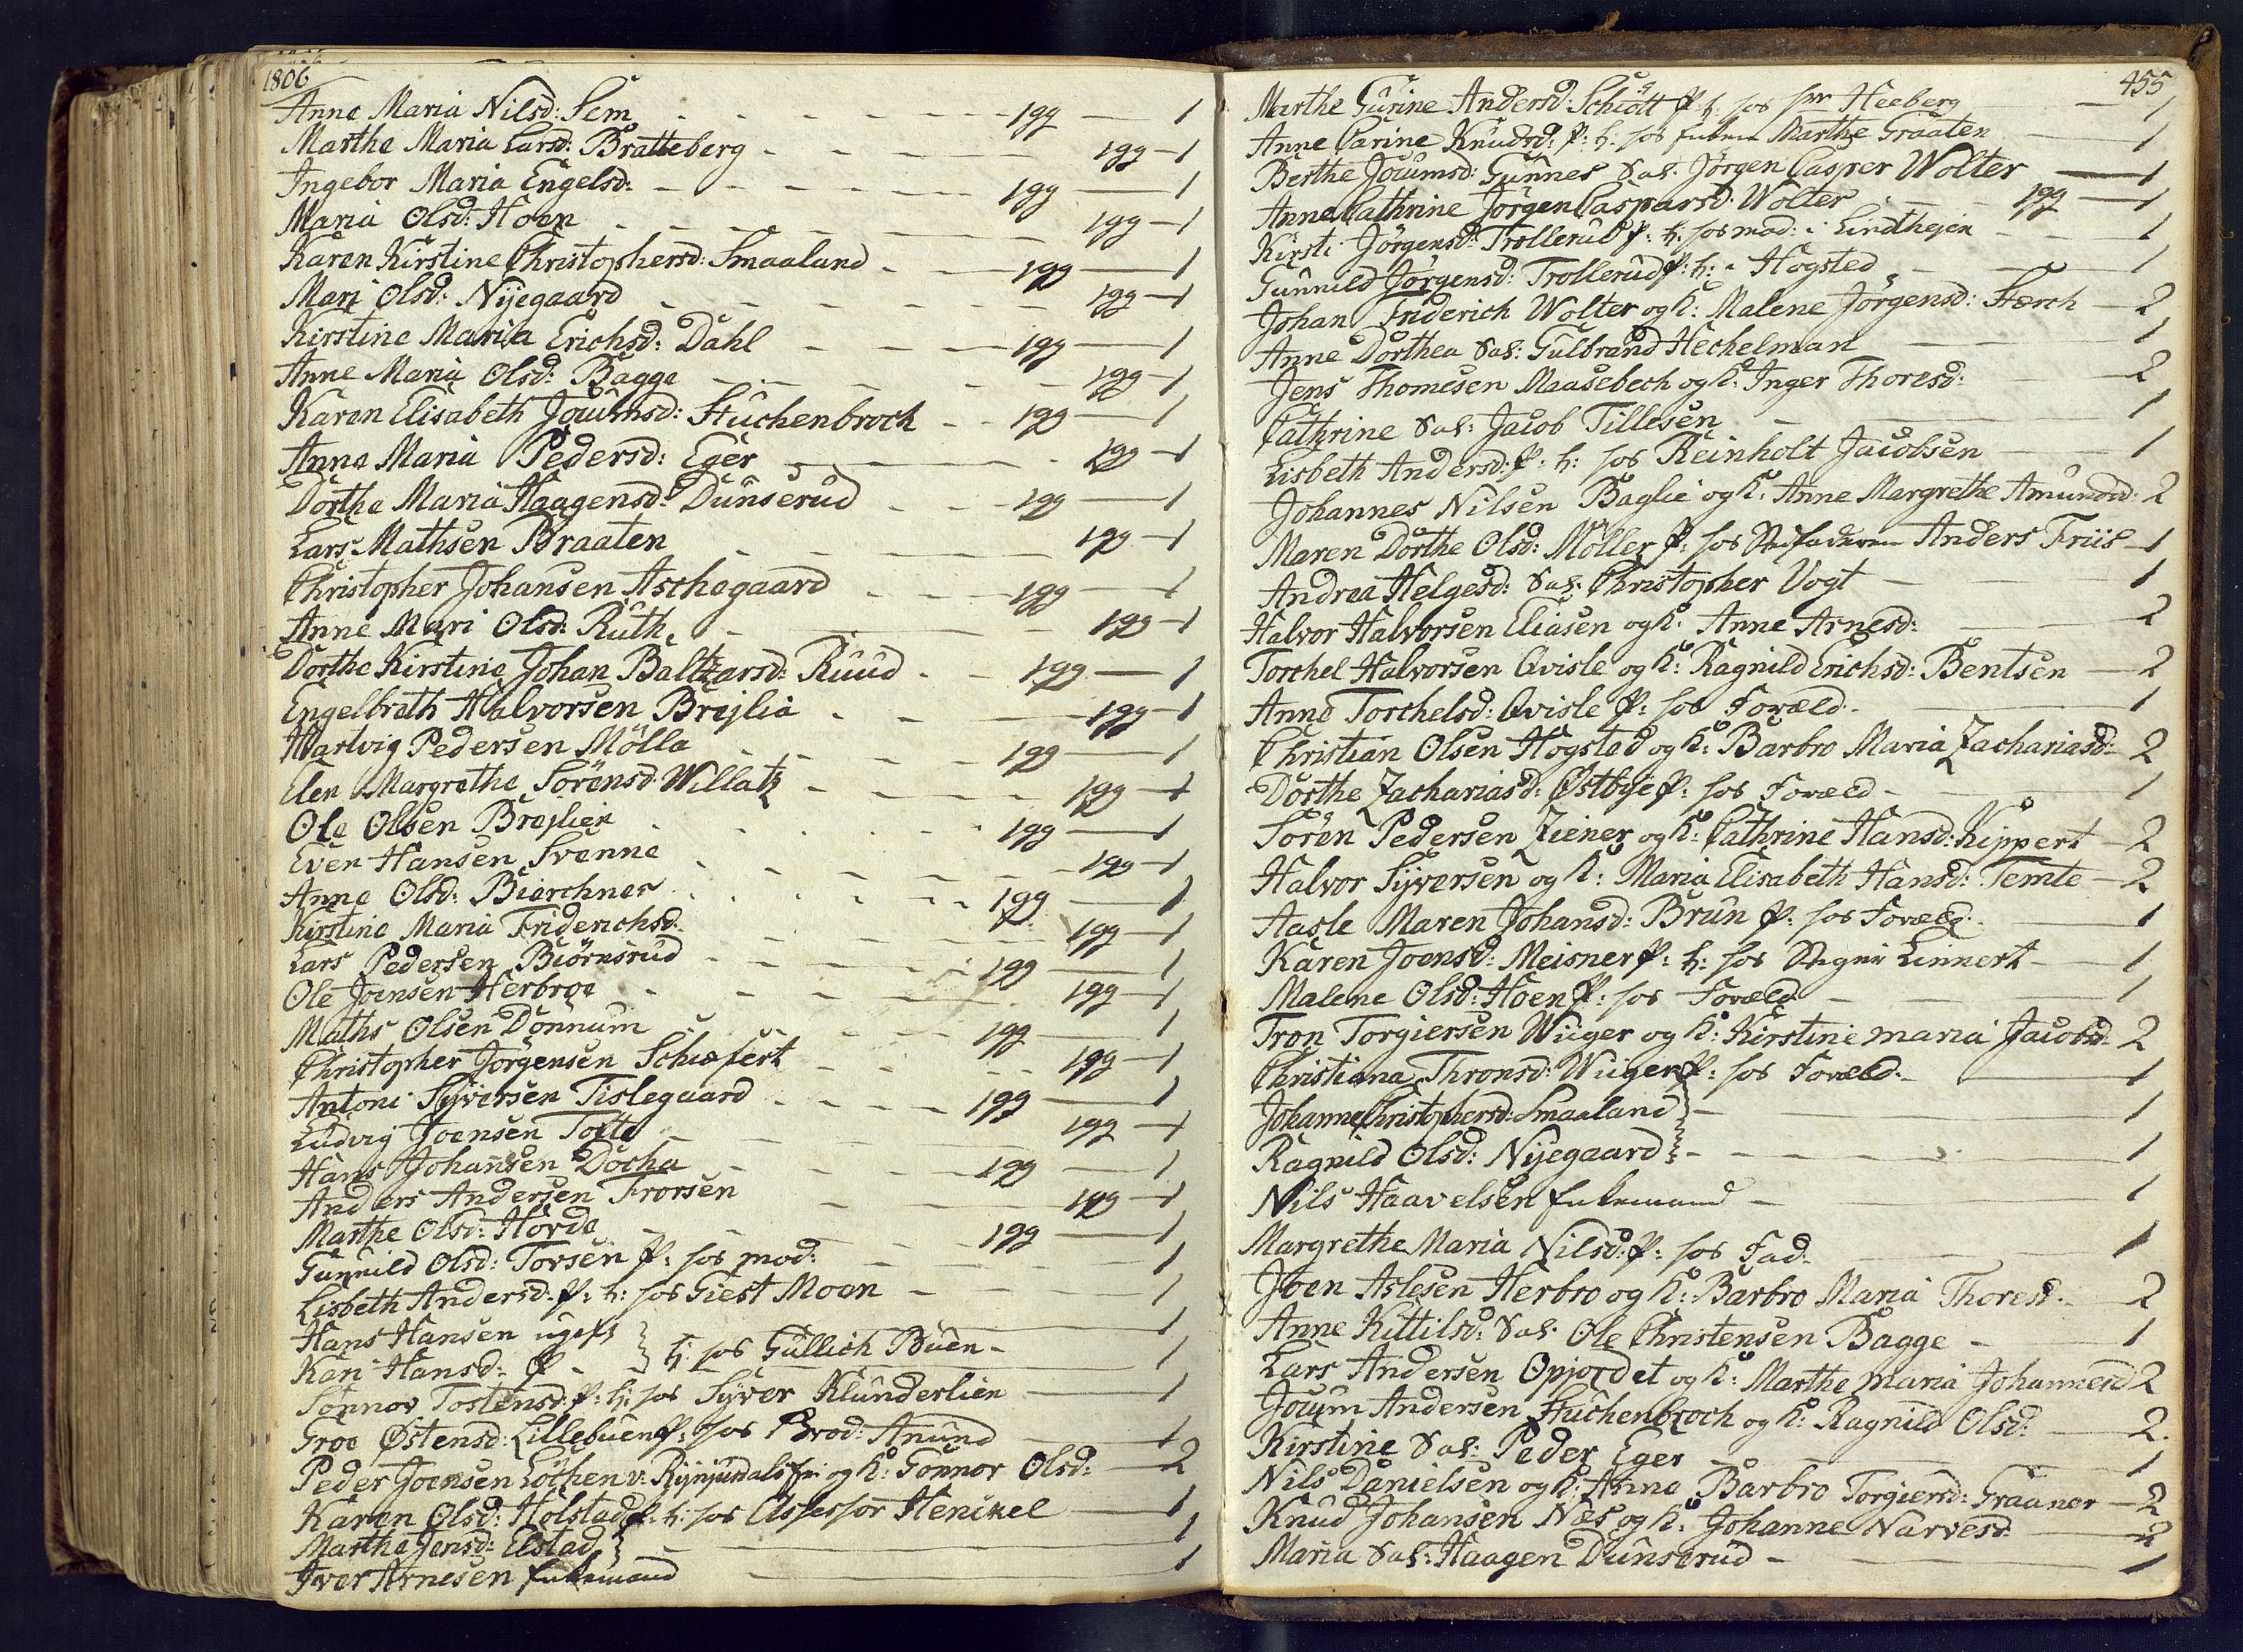 1806
Anne Maria Nilsd: Sem - - - - - 1gg - 1
Marthe Maria Larsd: Bratteberg - - - - 1gg - 1
Ingebor Maria Engelsd: - - - - - 1gg - 1
Maria Olsd: Hoen - - - - - 1gg - 1
Karen Kirstine Christophersd: Smaaland - - 1gg - 1
Mari Olsd: Nijegaard - - - - - 1gg - 1
Kirstine Maria Erichsd: Dahl - - - 1gg - 1
Anne Maria Olsd: Bagge - - - - - 1gg - 1
Karen Elisabeth Jouumsd: Stuchenbroch - - 1gg - 1
Anne Maria Pedersd: Eger - - - - 1gg - 1
Dorthe Maria Haagensd: Dunserud - - - 1gg - 1
Lars Mathsen Braaten - - - - - 1gg - 1
Christopher Johansen Aschegaard - - - 1gg - 1
Anne Mari Olsd: Ruth - - - - 1gg - 1
Dorthe Kirstine Johan Baltzarsd: Ruud - - 1gg - 1
Engelbreth Halvorsen Brejlia - - - 1gg - 1
Hartvig Pedersen Mölla - - - - 1gg - 1
Elen Margrethe Sörensd: Willatz - - - - 1gg - 1
Ole Olsen Brejlien - - - - - 1gg - 1
Even Hansen Svenne - - - - - 1gg - 1
Anne Olsd: Bierchner - - - - - 1gg - 1
Kirstine Maria Friderichsd: - - - - 1gg - 1
Lars Pedersen Biörnsrud - - - - 1gg - 1
Ole Joensen Herbroe - - - - - 1gg - 1
Maths Olsen Donnum - - - - 1gg - 1
Christopher Jörgensen Schiefert - - - - 1gg - 1
Antoni Sÿversen Tislegaard - - - - 1gg - 1
Ludvig Joensen Tofte - - - - - 1gg - 1
Hans Johansen Docha - - - - 1gg - 1
Anders Andersen Frorsen - - - - 1gg - 1
Marthe Olsd: Horde - - - - 1gg - 1
Gunnild Olsd: Torsen P: hos mod: - - - 1
Lisbeth Andersd: P: h: hos Giest Moen - - - 1
Hans Hansen ugift - 1
Kari Hansd: P - } h: hos Gullich Buen - 1
Sonnov Tostensd: P: h: hos Syver Klunderlien - 1
Groe Østensd: Lillebuen P: hos Brod: Anund - 1
Peder Joensen Löchen v: og K: Gonnor Olsd: - 2
Karen Olsd: Holstad P: h: hos Assessor Henckel - 1
Marthe Jensd: Elstad } - - 1
Iver Arnesen Enkemand - 1
455
Marthe Gurine Andersd: Schiött P: h: hos Hr Heeberg - 1
Anne Carine Knudsd: P: h: hos Enken Marthe Graaten - 1
Berthe Jouumsd: Gunnes Sal: Jörgen Casper Wolter - 1
Anne Cathrine Jörgen Caspersd: Wolter - - 1gg - 1
Kirsti Jörgensd: Trollerud P: h: hos mad: i Lindthejen - - 1
Gunnild Jörgensd: Trollerud P: h: - Hogsted - - 1
Johan Friderich Wolter og K: Malene Jörgensd: Stærch - 2
Anne Dorthea Sal: Gulbrand Hechelman - - 1
Jens Thomesen Maasebech og K: Inger Thoresd: - - 2
Cathrine Sal: Jacob Tillesen - - - 1
Lisbeth Andersd: P: h: hos Reinholt Jacobsen - - 1
Johannes Nilsen Baglie og K: Anne Margrethe Amundsd: 2
Maren Dorthe Olsd: Möller P: hos Stedfaderen Anders Friis - 1
Andrea Helgesd: Sal: Christopher Vogt - - 1
Halvor Halvorsen Eliasen og K: Anne Arnesd: - - 2
Torchel Halvorsen Qvisle og K: Ragnild Erichsd: Bentsen - 2
Anne Torchelsd: Qvisle P: hos Foræld: - - 1
Christian Olsen Hogstad og K: Barbro Maria Zachariasd: - 2
Dorthe Zachariasd: Østbye P: hos Foræld - - 1
Sören Pedersen Ziener og K: Cathrine Hansd: Kippert - 2
Halvor Sÿversen og K: Maria Elisabeth Hansd: Temte - 2
Aasle Maren Johansd: Brun P: hos Foræld: - 1
Karen Joensd: Meisner P: h: hos Linnert - 1
Malene Olsd: Hoen P: hos Foræld - - 1
Tron Torgiersen Wiiger og K: Kirstine maria Jacobsd: 2
Christiana Thronsd: Wiiger P: hos Foræld: - - 1
Johanne Christophersd: Smaaland } - - 1
Ragnild Olsd: Nijegaard } - - - - 1
Nils Haavelsen Enkemand - - 1
Margrethe Maria Nilsd: P: hos Fad: - - 1
Joen Aslesen Herbro og K: Barbro Maria Thoresd: - 2
Anne Kittilsd: Sal: Ole Christensen Bagge - 1
Lars Andersen Opjordet og K: Marthe maria Johannesd 2
Jouum Andersen Stuchenbroch og K: Ragnild Olsd: - 2.
Kirstine Sal: Peder Eger - - - 1
Nils Danielsen og K: Anne Barbro Torgiersd: Graaner - 2
Knud Johansen Næs og K: Johanne Narvesd - 2
Maria Sal: Haagen Dunserud - - 1